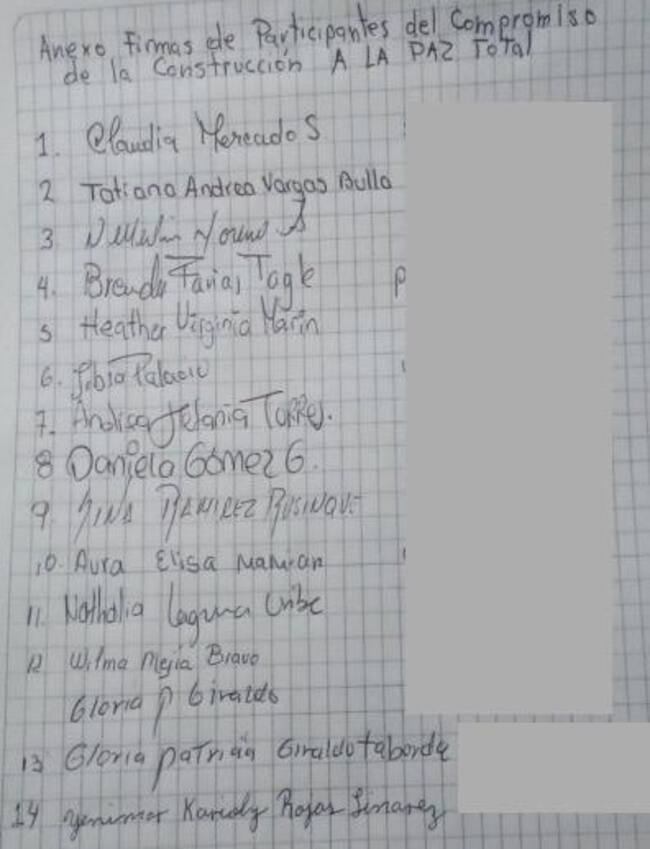 Anexo firmas de Participantes del Compromiso
de la Construcción A LA PAZ TOTAL
1. Claudia Mercado S
2 Tatiana Andrea Vargas Bulla
3
4. Brenda Farias Tagle
5 Heather Virginia Marin
6. Palacio
7. Andrea Stefania Torres.
8 Daniela Gómez G.
9 GINA RAMIREZ
10. Aura Elisa
11. Nathalia Laguna Uribe
12 Wilma Mejia Bravo
Gloria P Giraldo
13 Gloria patricia Giraldo taborda
14 yenimar Karioly Rojas Linarez
P